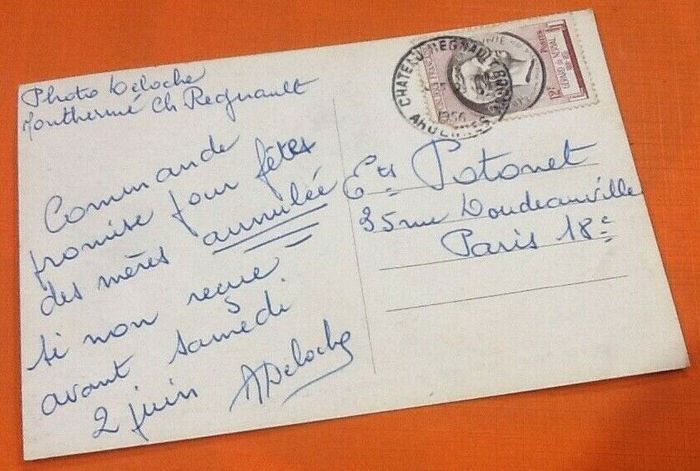 Photo Deloche
Monthermé Ch Regnault
Commande
promise pour fêtes
des mères annulée
si non reçue
avant samedi
2 juin ADeloche
Ets Potonet
35 rue Doudeauville
Paris 18e
CHATEAU-REGNAULT-BOGNY
ARDENNES
1956